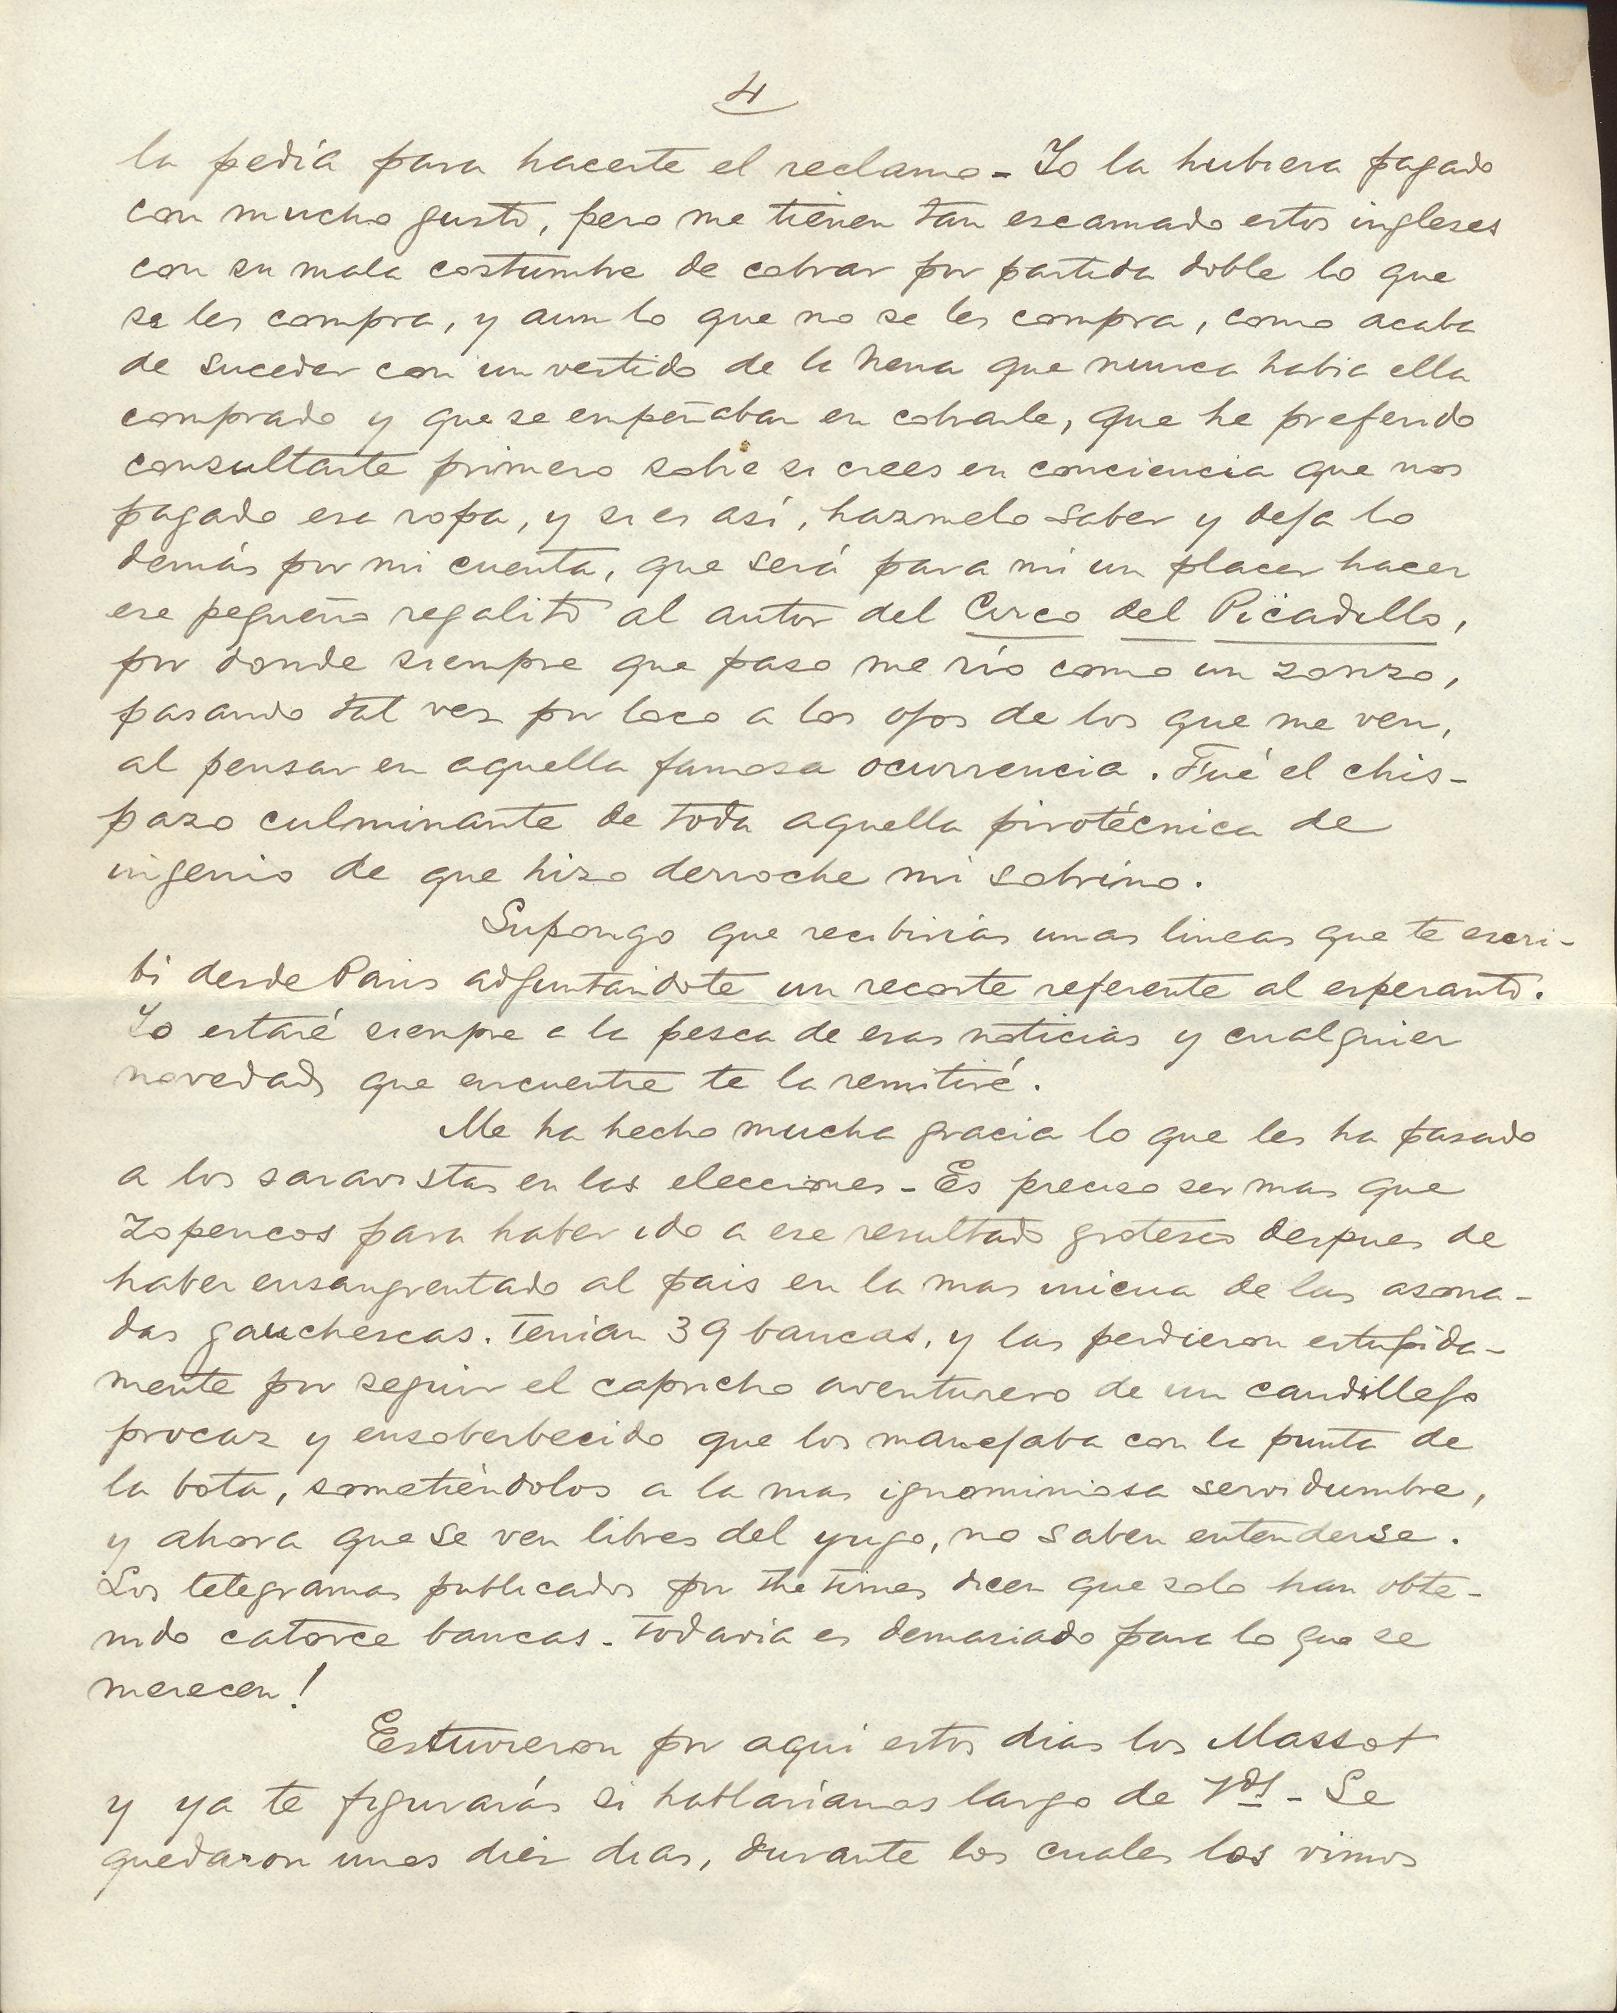 4
la pedía para hacerte el reclamo - Yo la hubiera pagado
con mucho gusto, pero me tienen tan escamado estos ingleses
con su mala costumbre de cobrar por partida doble lo que
se les compra, y aun lo que no se les compra, como acaba
de suceder con un vestido de la Nena que nunca habia ella
comprado y que se empeñaban en cobrarle, que he preferido
consultarte primero sobre si crees en conciencia que nos
pagado esa ropa, y si es así, hazmelo saber y deja lo
demás por mi cuenta, que será para mí un placer hacer
ese pequeño regalito al autor del Circo del Picadillo,
por donde siempre que paso me río como un zonzo,
pasando tal vez por loco a los ojos de los que me ven,
al pensar en aquella famosa ocurrencia. Fué el chis-
pazo culminante de toda aquella pirotécnica de
ingenio de que hizo derroche mi sobrino.
Supongo que recibirías unas lineas que te escri-
bi desde Paris adjuntándote un recorte referente al esperanto.
Yo estaré siempre a la pesca de esas noticias y cualquier
novedad que encuentre te la remitiré.
Me ha hecho mucha gracia lo que les ha pasado
a los saravistas en las elecciones - Es preciso ser mas que
zopencos para haber ido a ese resultado grotesco despues de
haber ensangrentado al pais en la mas inicua de las asona-
das gauchescas. Tenian 39 bancas, y las perdieron estupida-
mente por seguir el capricho aventurero de un caudillejo
procaz y ensoberbecido que los manejaba con la punta de
la bota, sometiéndolos a la mas ignominiosa servidumbre,
y ahora que se ven libres del yugo, no saben entenderse.
Los telegramas publicados por the times dicen que solo han obte-
nido catorce bancas. Todavia es demasiado para lo que se
merecen!
Estuvieron por aquí estos dias los Massot
y ya te figurarás si hablaríamos largo de Vds - Se
quedaron unos diez dias, durante los cuales los vimos